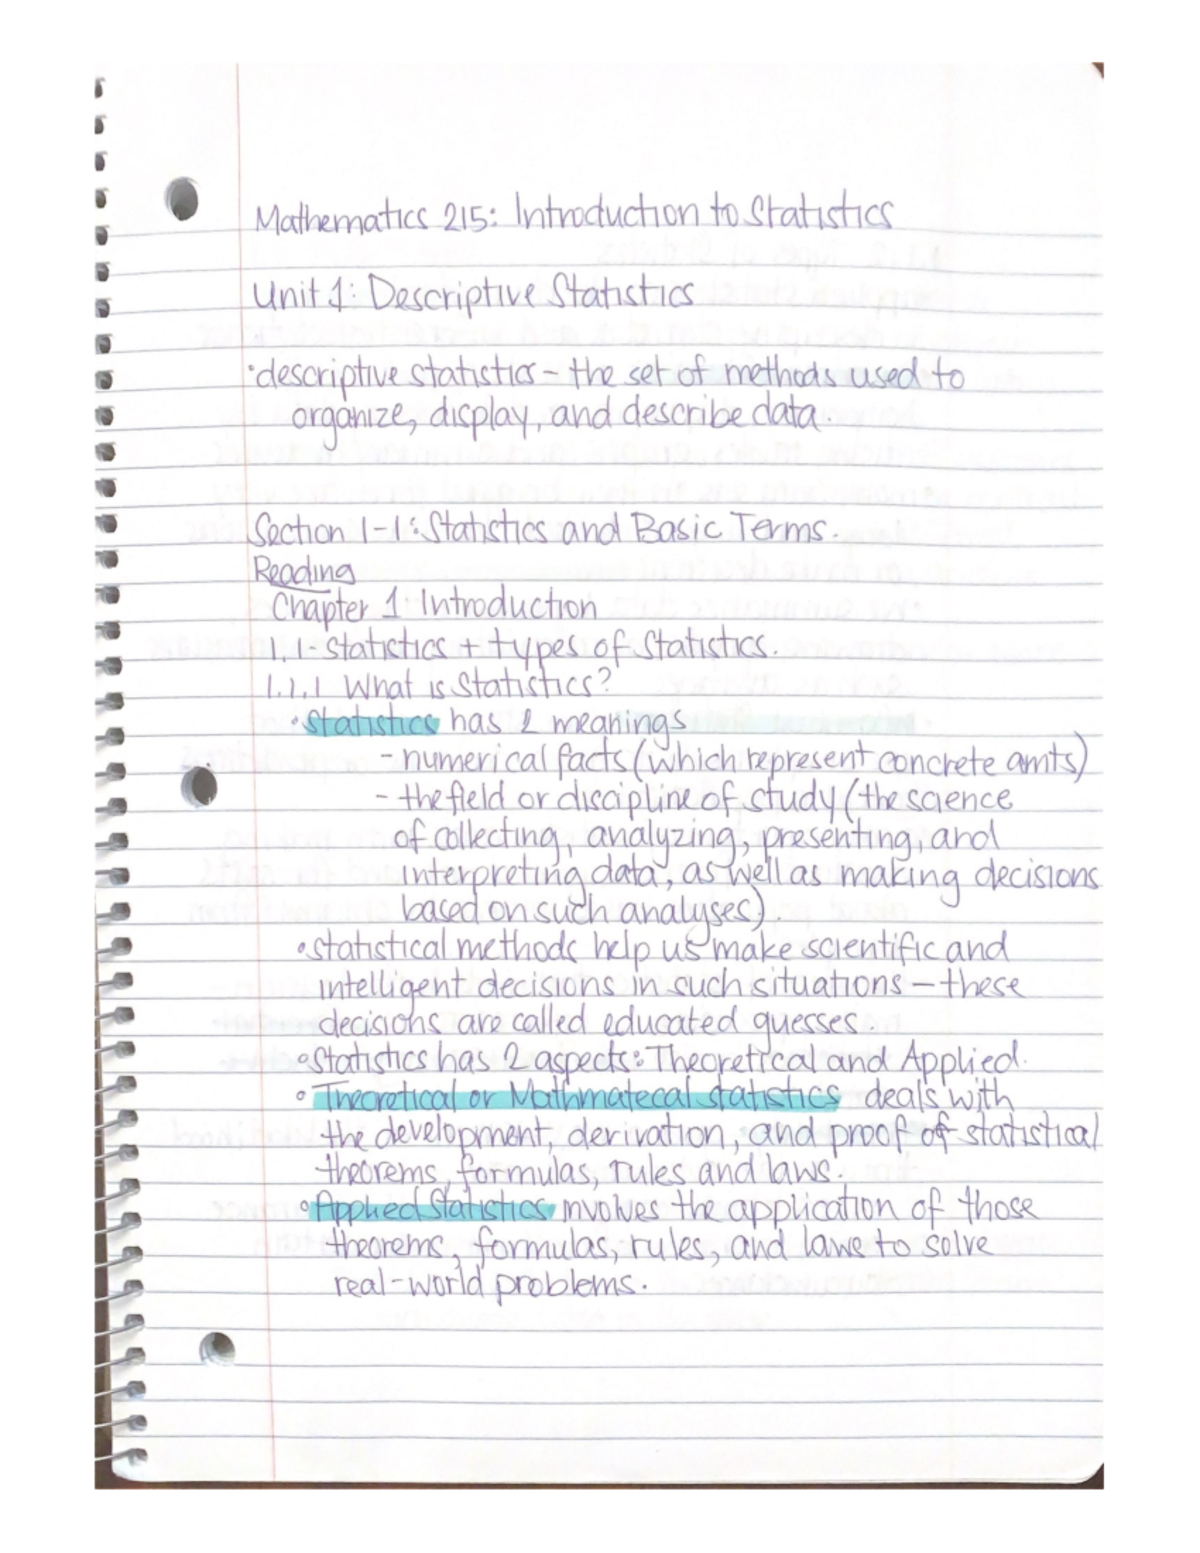 Mathematics 215: Introduction to Statistics
Unit 1: Descriptive Statistics
•descriptive statistics – the set of methods used to
organize, display, and describe data.
Section 1-1: Statistics and Basic Terms.
Reading
Chapter 1: Introduction
1.1 Statistics + types of Statistics.
1.1.1 What is Statistics?
•Statistics has 2 meanings
- numerical facts (which represent concrete amts)
- the field or discipline of study (the science
of collecting, analyzing, presenting, and
interpreting data, as well as making decisions
based on such analyses).
•statistical methods help us make scientific and
intelligent decisions in such situations – these
decisions are called educated guesses.
•Statistics has 2 aspects: Theoretical and Applied.
• Theoretical or Mathmatecal statistics deals with
the development, derivation, and proof of statistical
theorems, formulas, rules and laws.
•Applied Statistics involves the application of those
theorems, formulas, rules, and laws to solve
real-world problems.